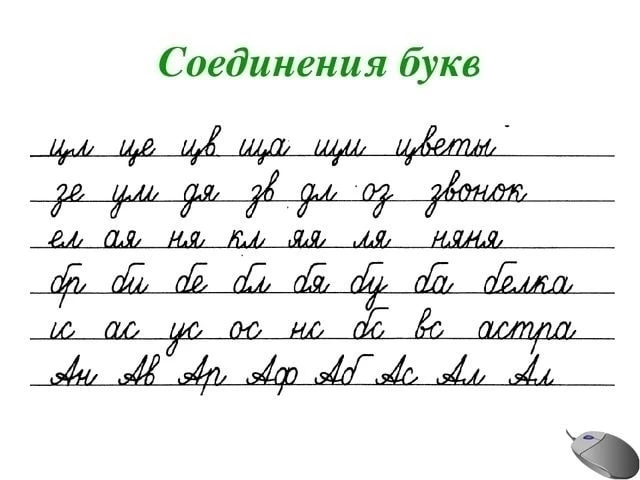 Соединения букв
цл це цв ща щи цветы
зе ум дя зв дл оз звонок
ел ая ня кл яя ля няня
бр би бе бл бя бу ба белка
ис ас ус ос нс бс вс астра
Ан Ав Ар Аф Аб Ас Ал Ал